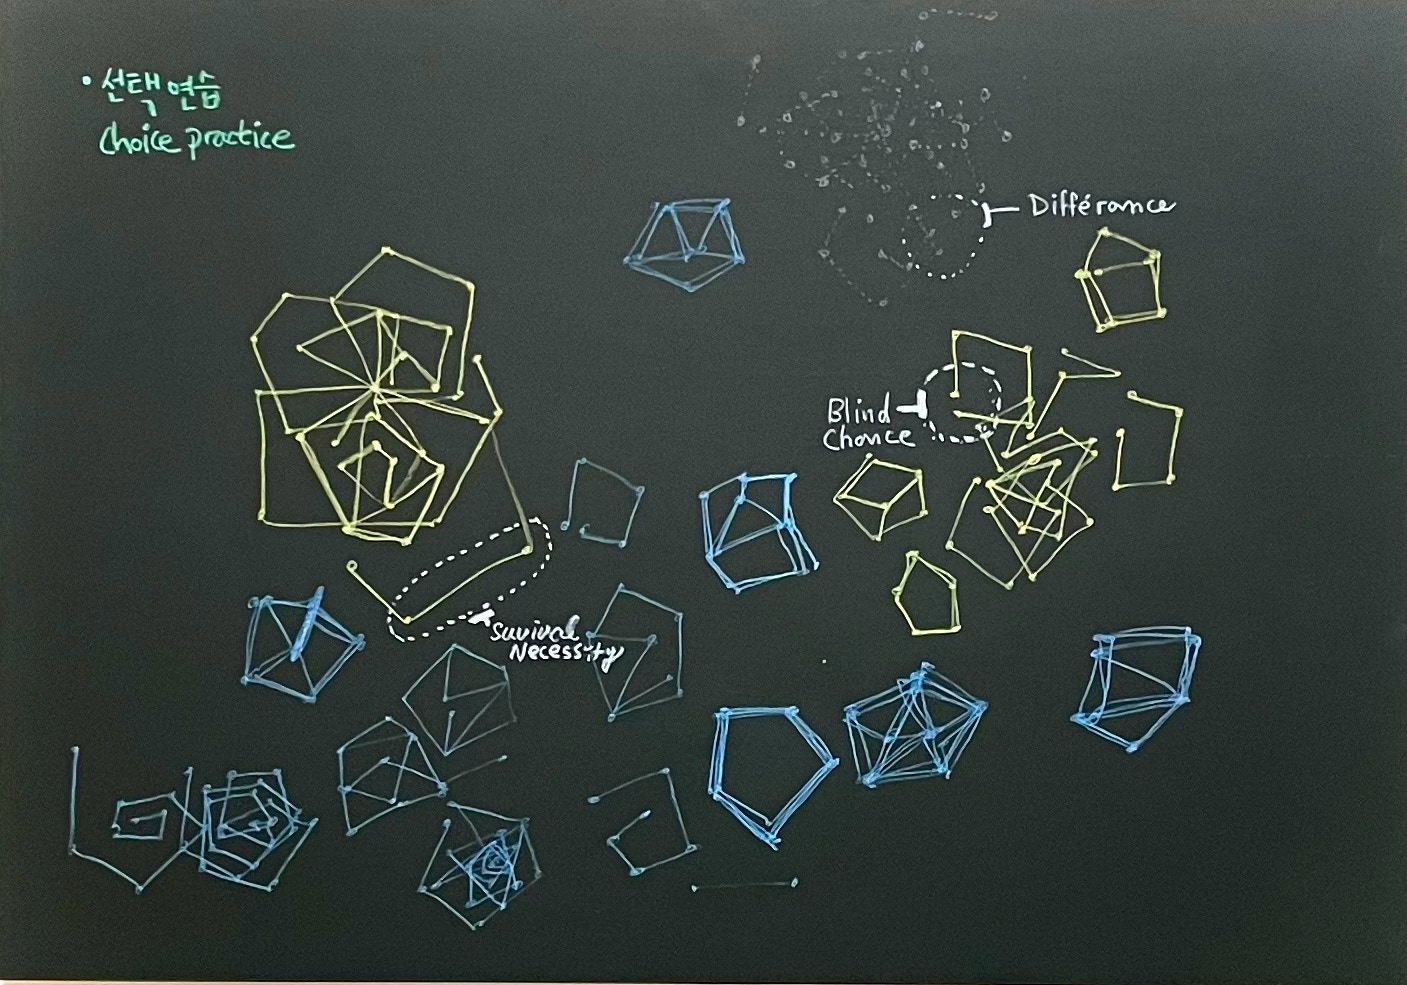 • 선택연습
Choice practice
Différance
Blind
Chance
Suvival
Necessity